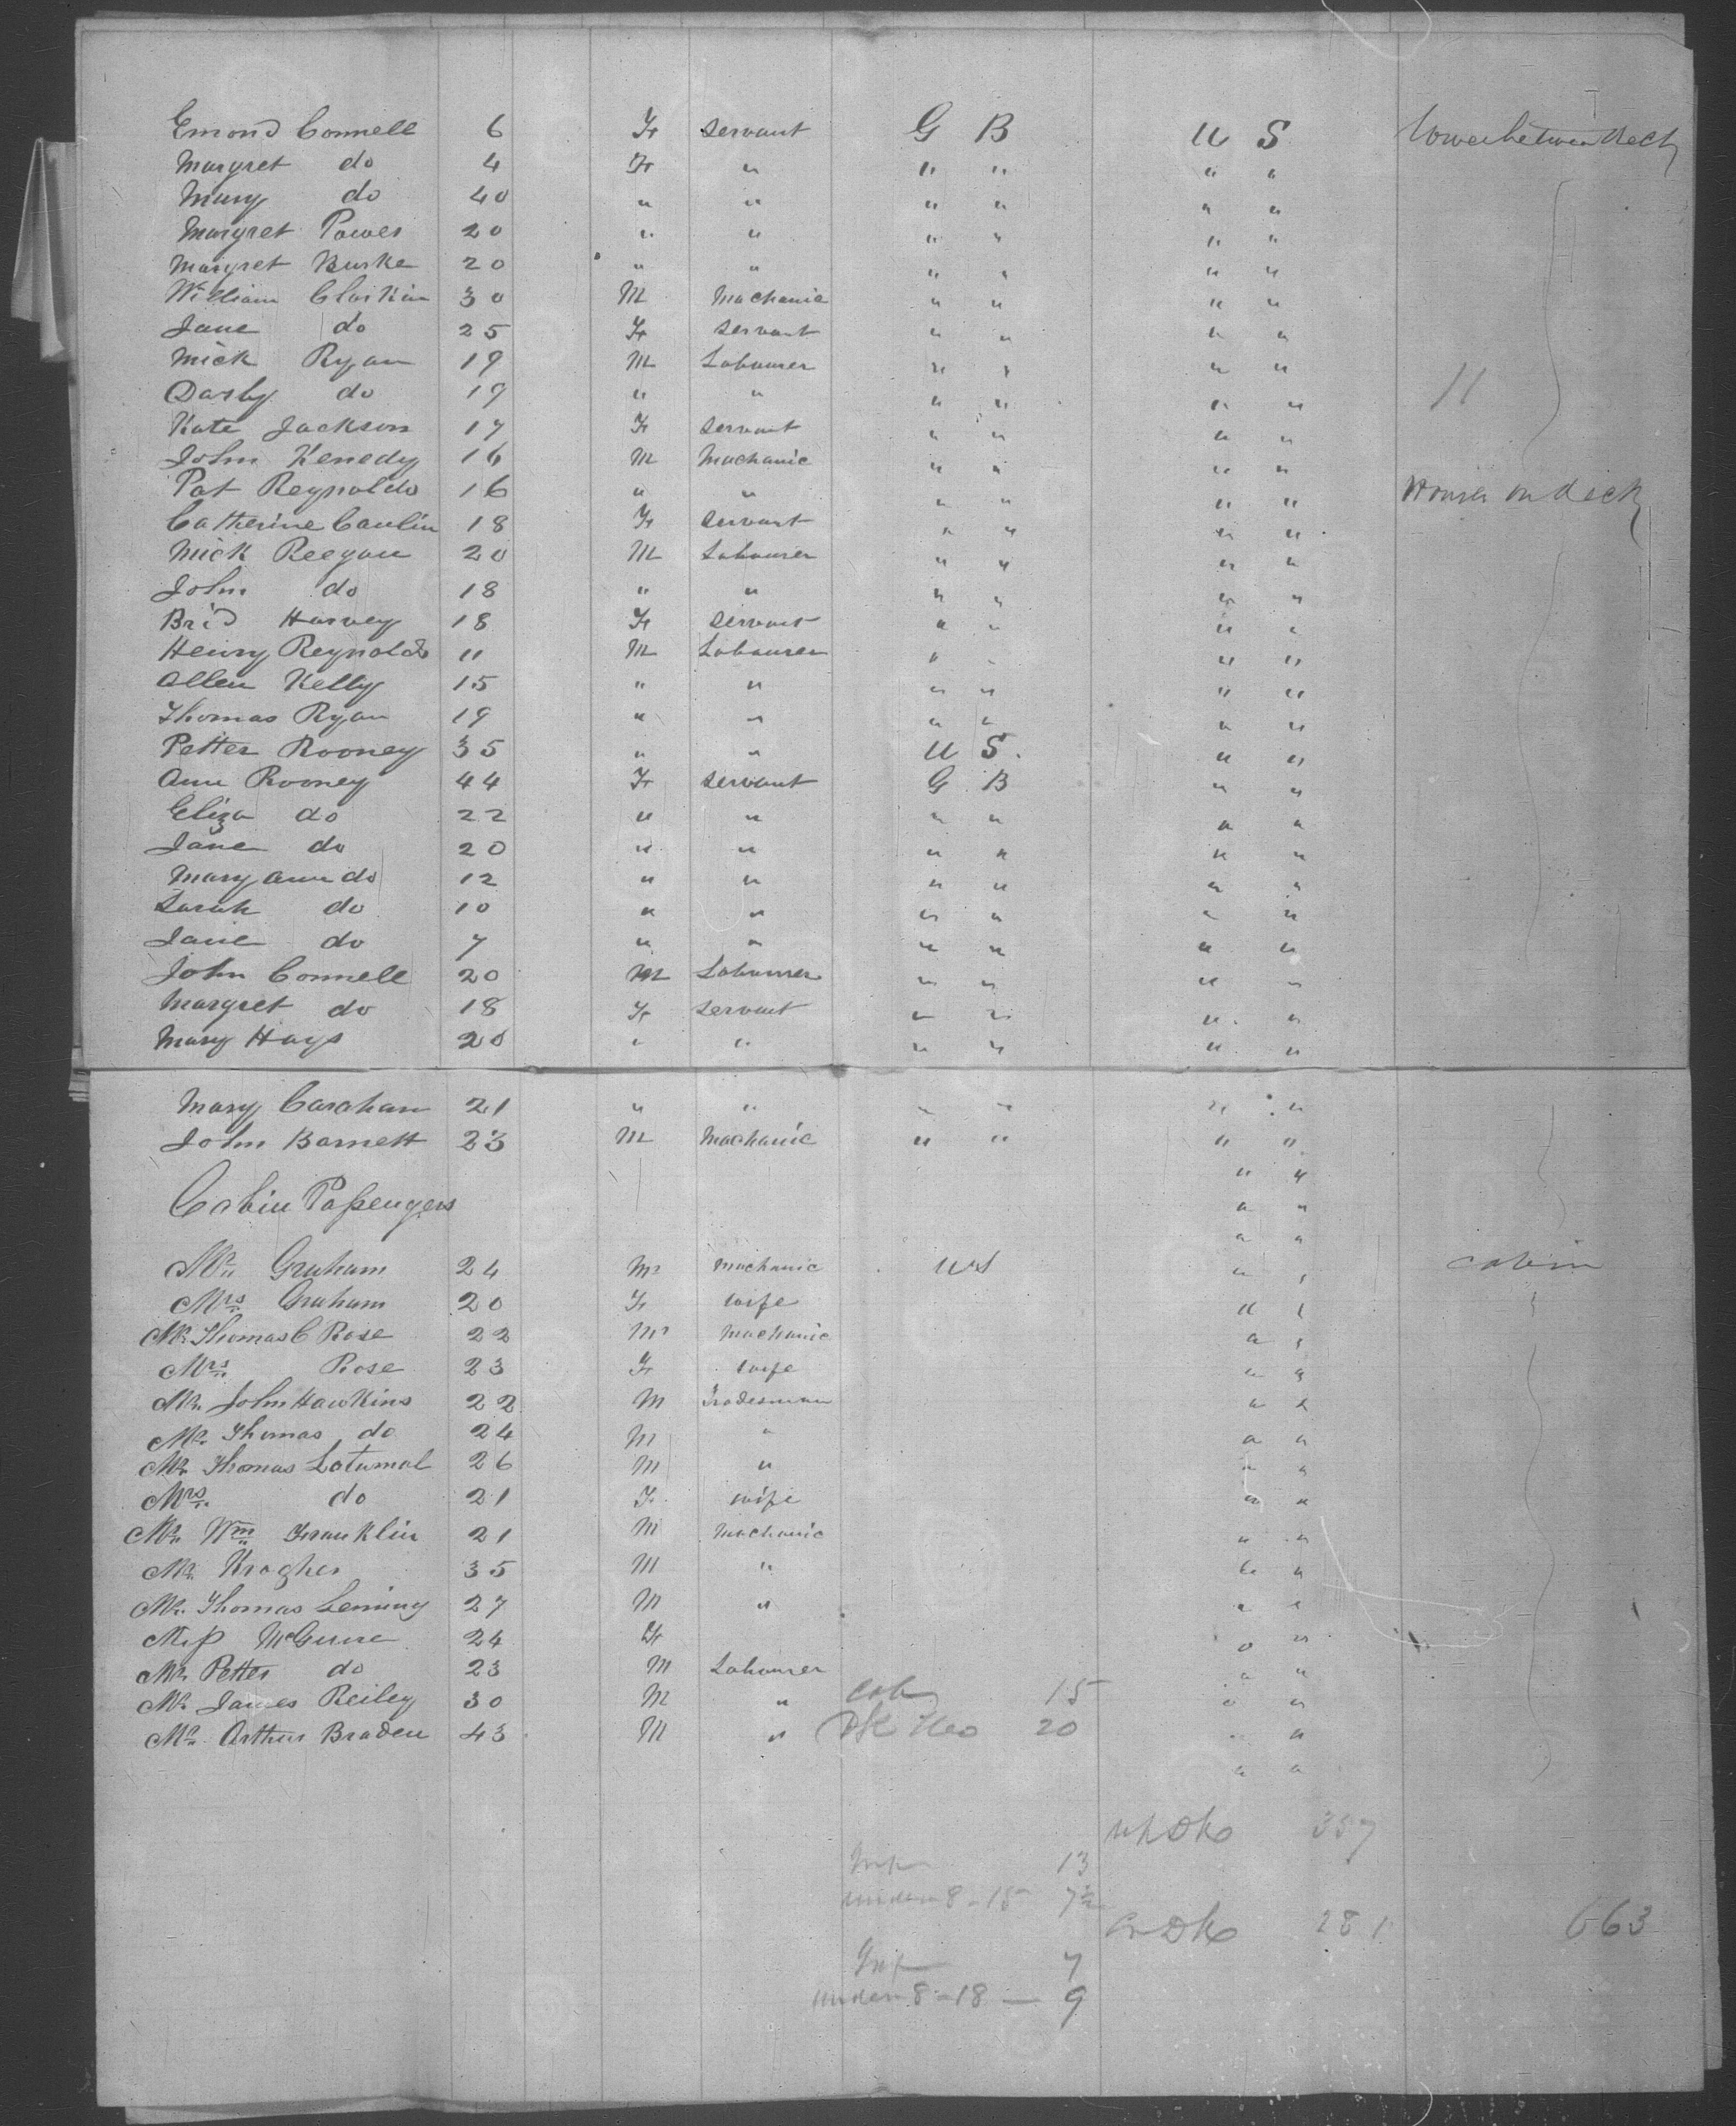 Emond Connell 6 F servant G B U S Lower between deck
Margret do 4 F " " " " "
Mary do 40 " " " " " "
Margret Power 20 " " " " " "
Margret Burke 20 " " " " " "
William Clarkin 30 M Machanic " " " "
Jane do 25 F servant " " " "
Mick Ryan 19 M Labourer " " " "
Darby do 19 " " " " " " "
Kate Jackson 17 F servant " " " "
John Kenedy 16 M Machanic " " " "
Pat Reynolds 16 " " " " " " House on deck
Catherine Caulin 18 F servant " " " "
Mick Reegan 20 M Labourer " " " "
John do 18 " " " " " "
Brid Harvey 18 F servant " " " "
Henry Reynolds 11 M Labourer " " " "
Allen Kelly 15 " " " " " "
Thomas Ryan 19 " " " " " "
Petter Rooney 35 " " U S. " "
Ann Rooney 44 F servant G B " "
Eliza do 22 " " " " " "
Jane do 20 " " " " " "
Mary ann do 12 " " " " " "
Sarah do 10 " " " " " "
Jane do 7 " " " " " "
John Connell 20 M Labourer " " " "
Margret do 18 F servant " " " "
Mary Hays 20 " " " " " "
Mary Carahan 21 " " " " " "
John Barnett 23 M Machanic " " " "
" "
Cabin Passengers " "
" "
Mr. Graham 24 M machanic U S " " cabin
Mrs. Graham 20 F wife " "
Mr. Thomas C Rose 22 M machanic " "
Mrs. Rose 23 F wife " "
Mr. John Hawkins 22 M Tradesman " "
Mr. Thomas do 24 M " " "
Mr. Thomas Latumal 26 M " " "
Mrs. do 21 F wife " "
Mr. Wm Franklin 21 M Machanic " "
Mr. Kragher 35 M " " "
Mr. Thomas Leming 27 M " " "
Miss McGuire 24 F " "
Mr. Petter do 23 M Labourer " "
Mr. James Reiley 30 M " Cab 15 " "
Mr. Arthur Braden 43 M " DK Heo 20 " "
" "
up Dk 337
Inf 13
under 8 - 15 7½
Lr Dk 281 663
Inf 7
under 8 - 18 — 9